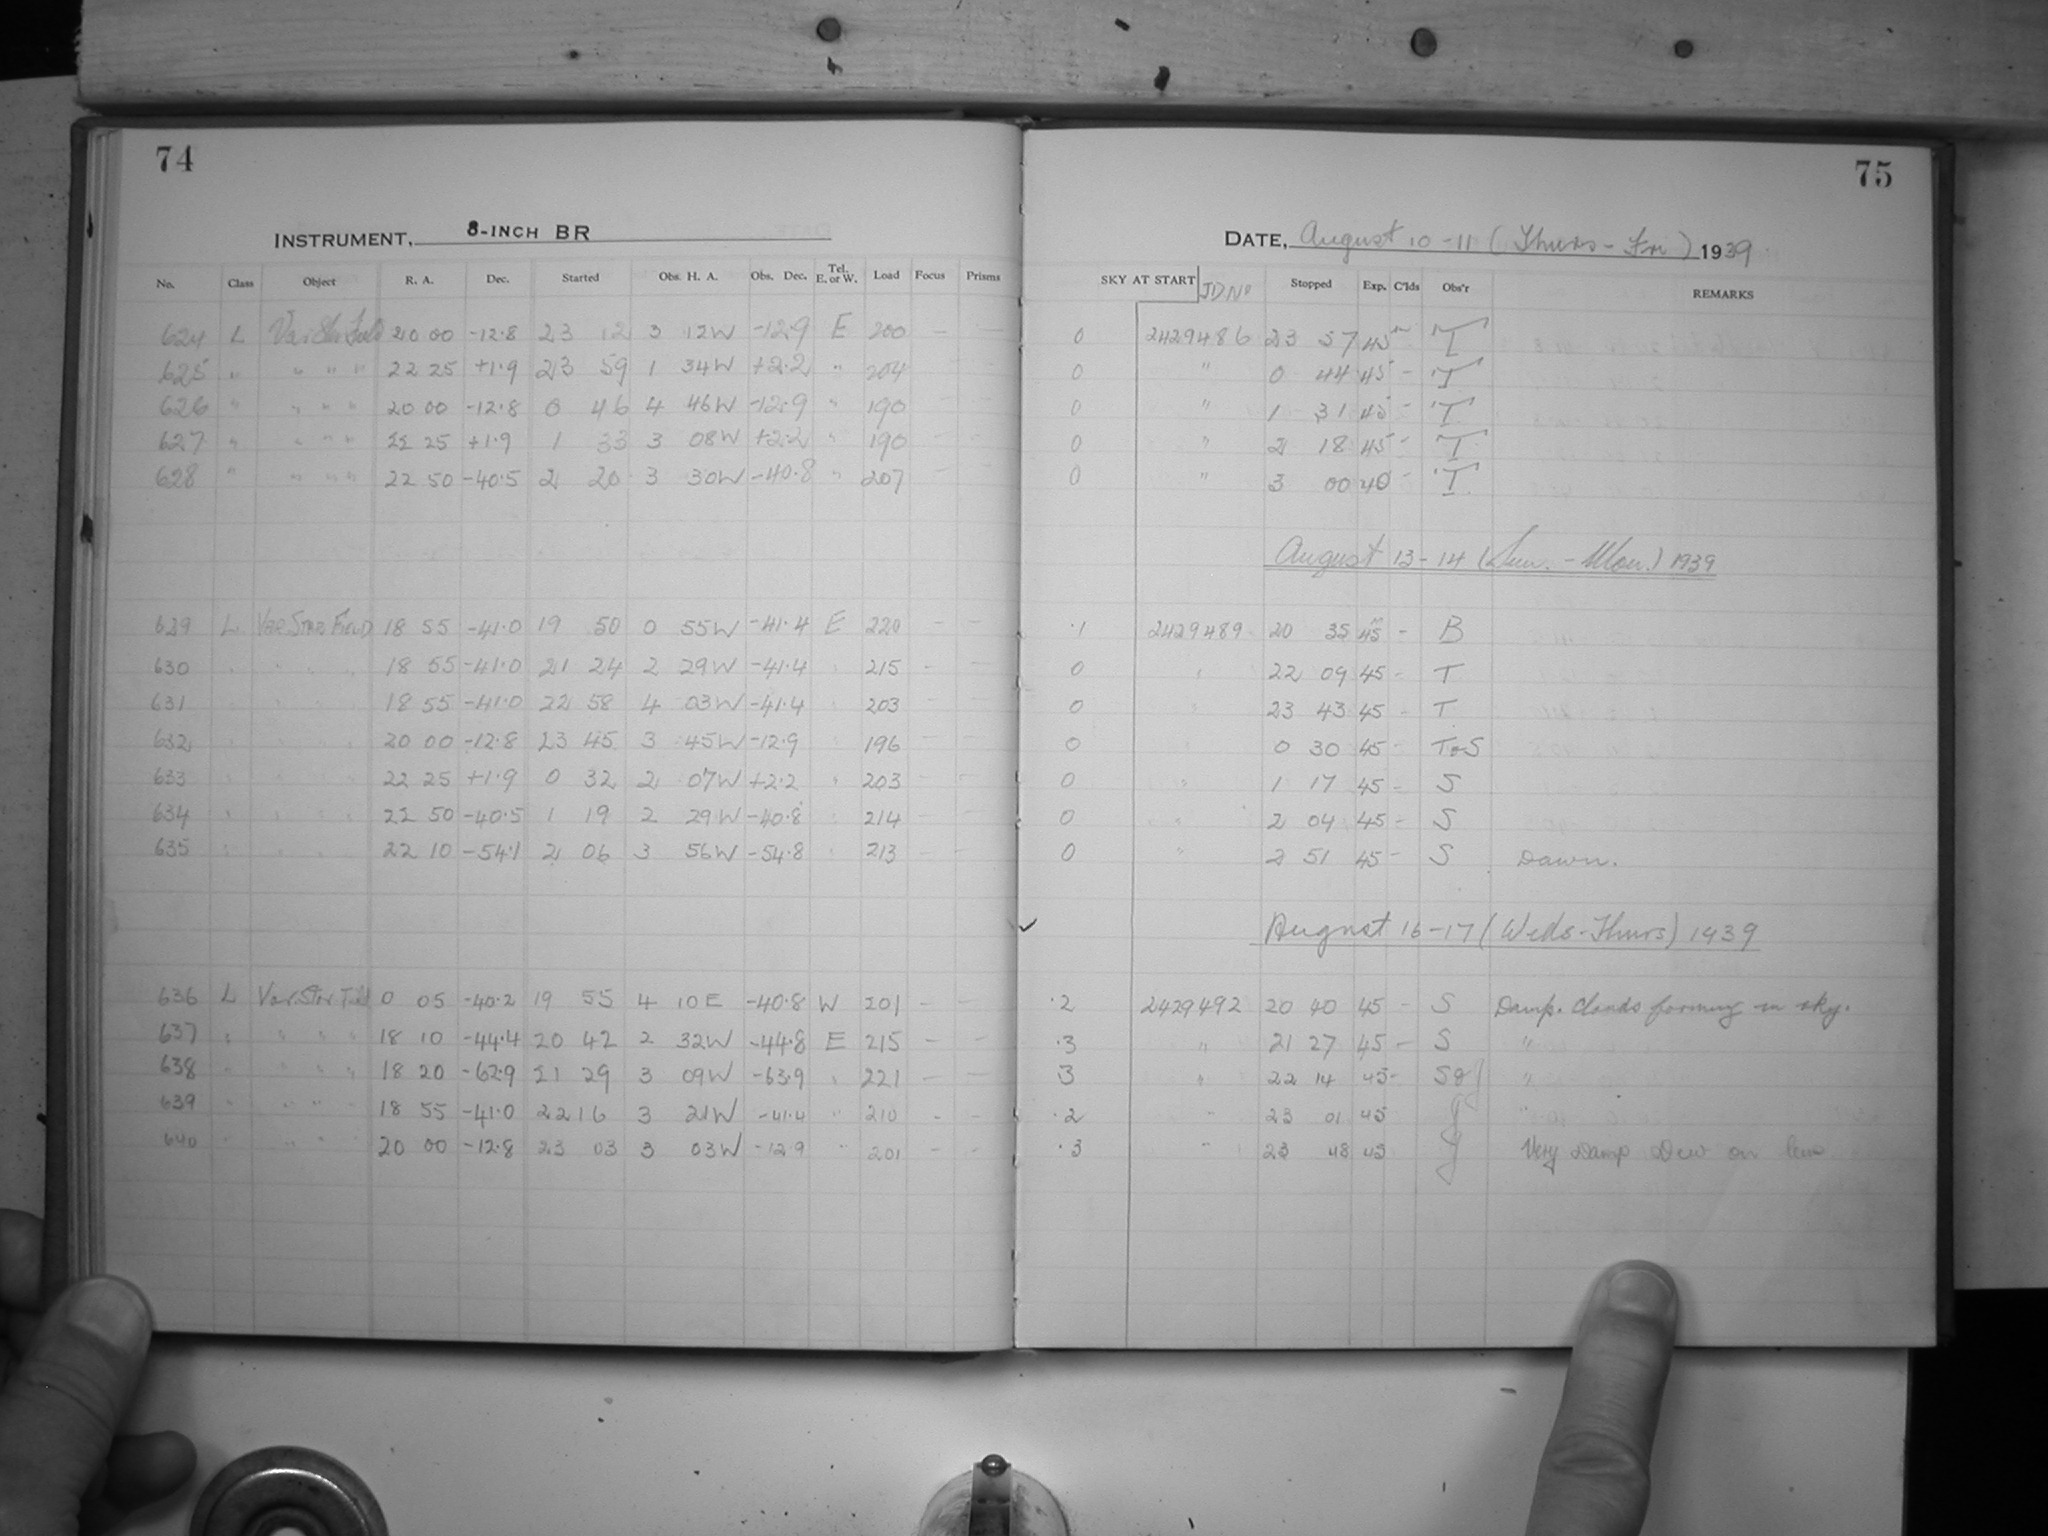 74
INSTRUMENT, 8-INCH BR
No. Class Object R. A. Dec. Started Obs. H. A. Obs. Dec. Tel. E. or W. Load Focus Prisms
624 L Var Star Field 20 00 -12.8 23 12 3 12W -12.9 E 200 - -
625 " " " " 22 25 +1.9 23 59 1 34W +2.2 " 204
626 " " " " 20 00 -12.8 0 46 4 46W -12.9 " 190
627 " " " " 22 25 +1.9 1 33 3 08W +2.2 " 190 - -
628 " " " " 22 50 -40.5 2 20 3 30W -40.8 " 207
629 L VAR STAR FIELD 18 55 -41.0 19 50 0 55W -41.4 E 220 - -
630 " " " " 18 55 -41.0 21 24 2 29W -41.4 " 215 - -
631 " " " " 18 55 -41.0 22 58 4 03W -41.4 " 203 - -
632 " " " " 20 00 -12.8 23 45 3 45W -12.9 " 196 - -
633 " " " " 22 25 +1.9 0 32 2 07W +2.2 " 203 - -
634 " " " " 22 50 -40.5 1 19 2 29W -40.8 " 214 - -
635 " " " " 22 10 -54.1 2 06 3 56W -54.8 " 213 - -
636 L Var Star Field 0 05 -40.2 19 55 4 10E -40.8 W 201 - -
637 " " " " 18 10 -44.4 20 42 2 32W -44.8 E 215 - -
638 " " " " 18 20 -62.9 21 29 3 09W -63.9 " 221 - -
639 " " " " 18 55 -41.0 22 16 3 21W -41.4 " 210 - -
640 " " " " 20 00 -12.8 23 03 3 03W -12.9 " 201 - -
75
DATE, August 10-11 (Thurs-Fri) 1939
SKY AT START JD No Stopped Exp. C'lds Obs'r REMARKS
0 2429486 23 57 45m - T
0 " 0 44 45 - T
0 " 1 31 45 - T
0 " 2 18 45 - T
0 " 3 00 40 - T
August 13-14 (Sun.-Mon.) 1939
.1 2429489 20 35 45m - B
0 " 22 09 45 - T
0 " 23 43 45 - T
0 " 0 30 45 - T&S
0 " 1 17 45 - S
0 " 2 04 45 - S
0 " 2 51 45 - S Dawn.
August 16-17 (Weds-Thurs) 1939
.2 2429492 20 40 45 - S Damp. Clouds forming in sky.
.3 " 21 27 45 - S "
3 " 22 14 45 - "
.2 " 23 01 45 "
.3 " 23 48 45 Very Damp Dew on lens